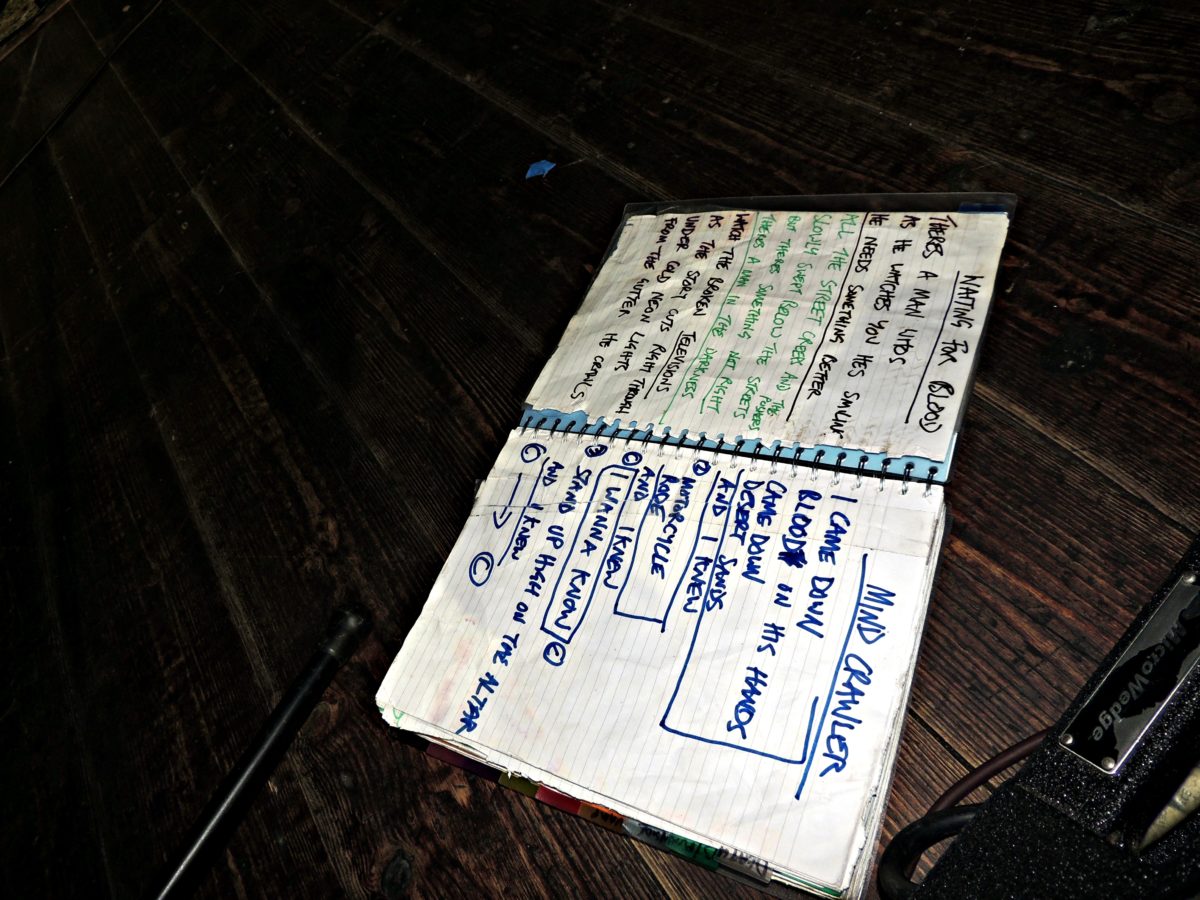 WAITING FOR BLOOD
THERES A MAN
AS HE WATCHES YOU HES
HE NEEDS SOMETHING BETTER
ALL THE STREET CREEPS AND THE PUSHERS
SLOWLY SWEPT BELOW THE STREETS
BUT THERES SOMETHING NOT RIGHT
THERES A MAN IN THE DARKNESS
WATCH THE BROKEN TELEVISIONS
AS THE STORY CUTS RIGHT THROUGH
UNDER COLD NEON LIGHTS
FROM THE GUTTER HE CRAWLS
MIND CRAWLER
I CAME DOWN
BLOOD IN HIS HANDS
CAME DOWN
DESERT SANDS
AND I KNEW
② MOTORCYCLE
RODE
AND I KNEW
I WANNA KNOW Ⓒ
③ STAND UP HIGH ON THE ALTAR
AND I KNEW
Ⓒ
MicroWedge